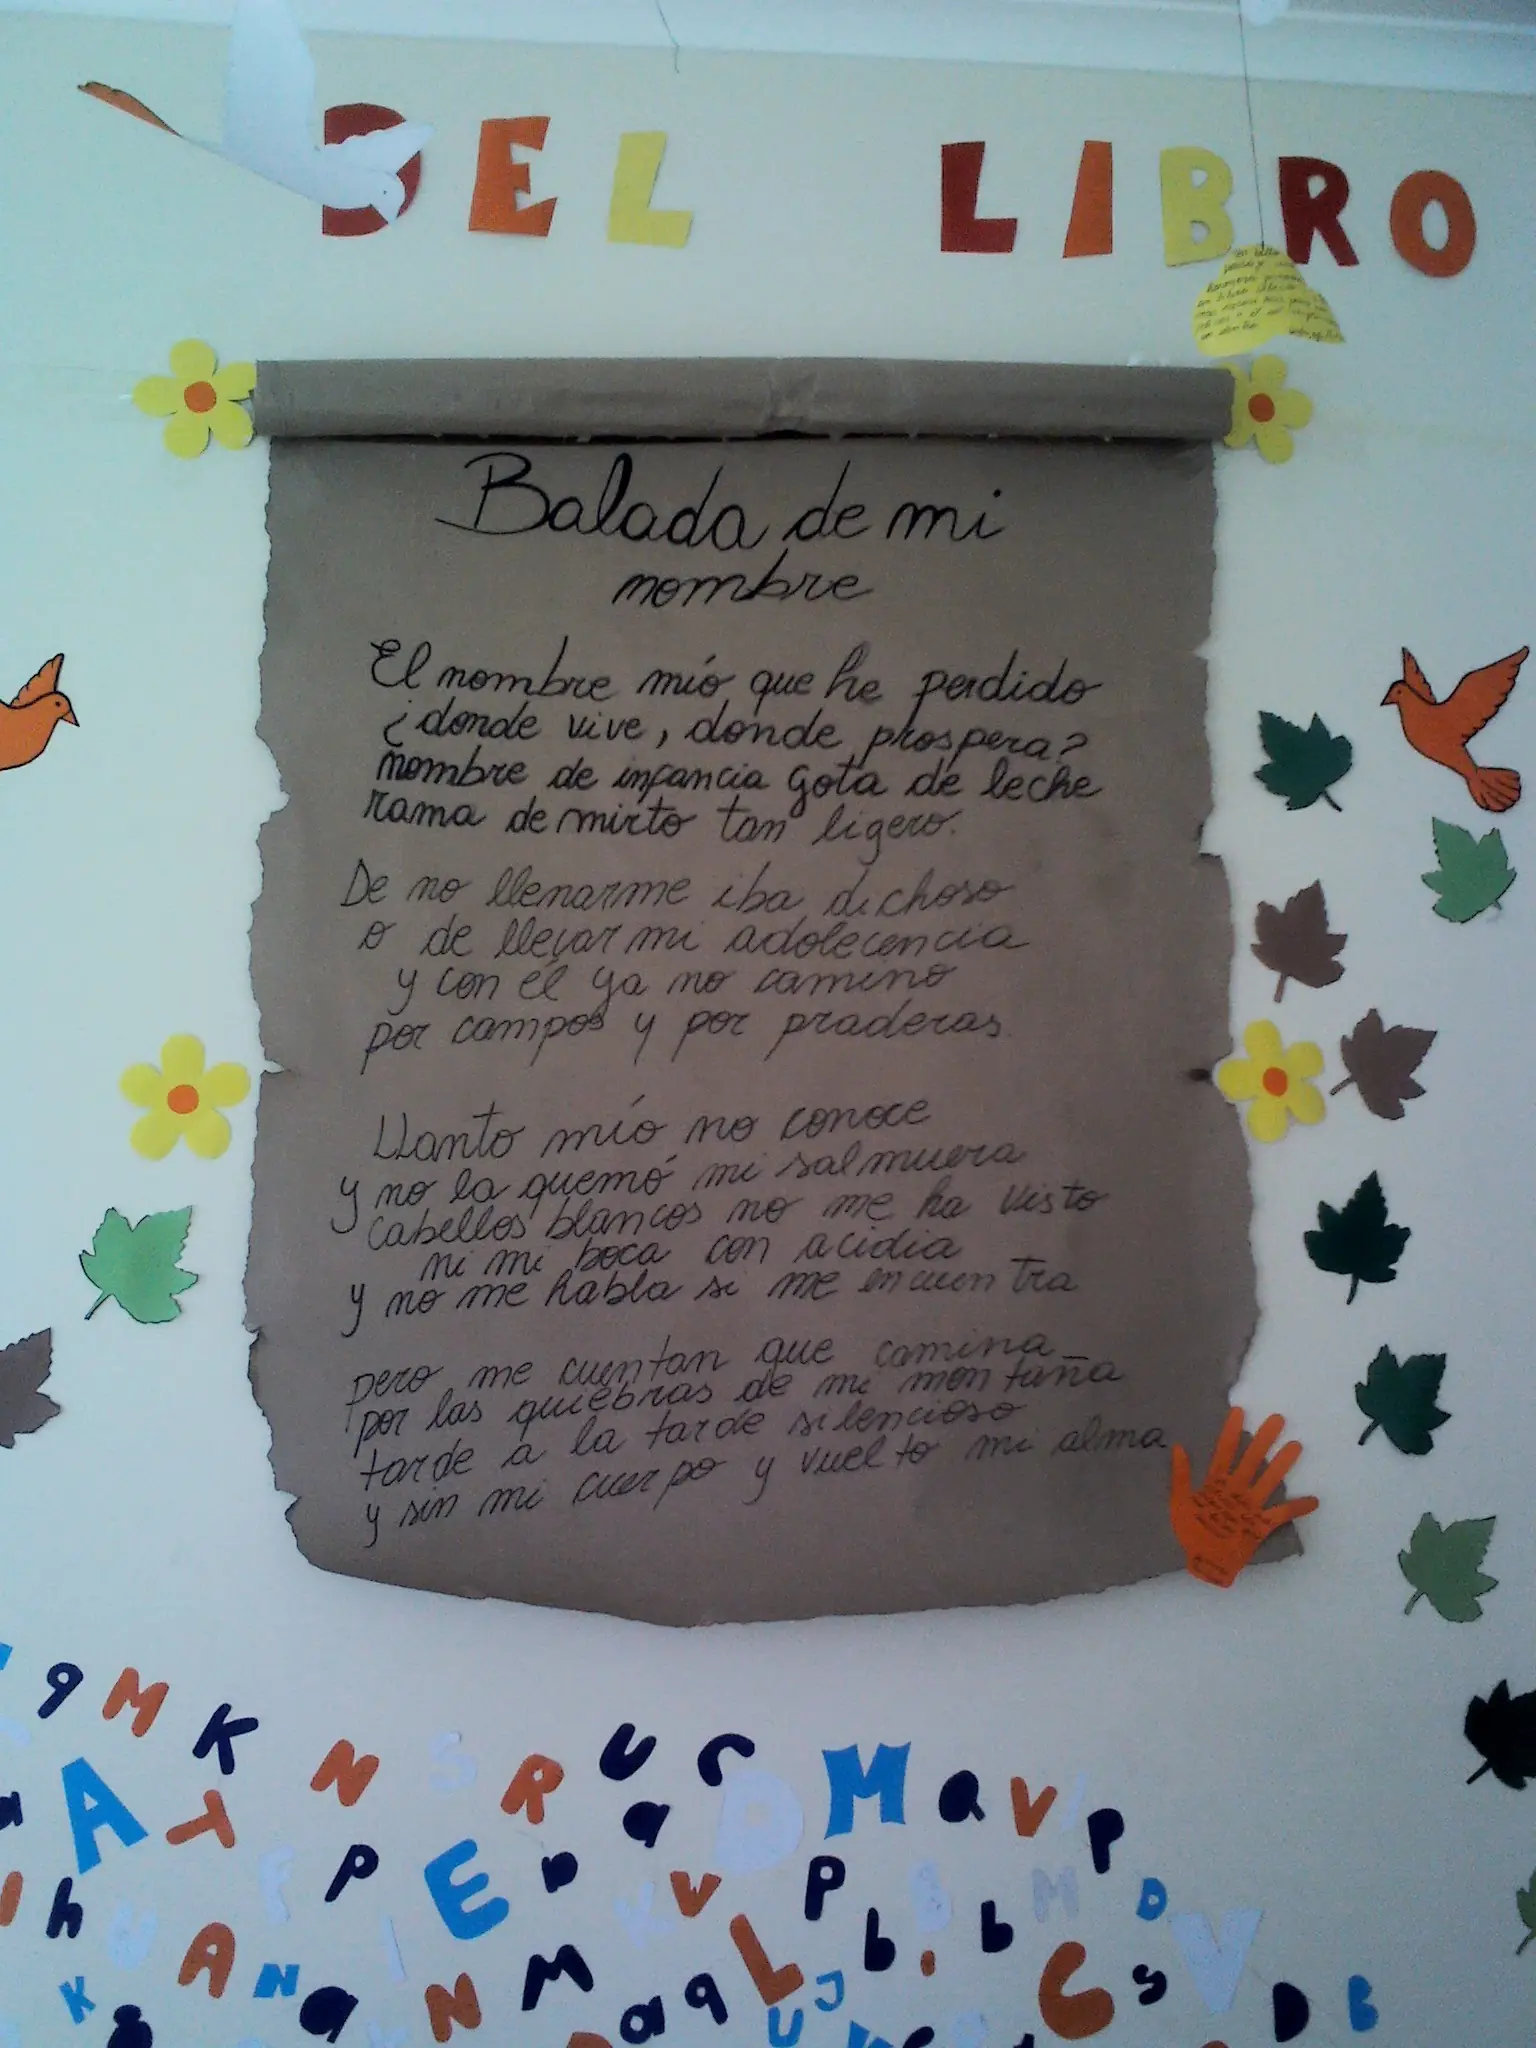 DEL LIBRO
Balada de mi
nombre
El nombre mío que he perdido
¿donde vive, donde prospera?
nombre de infancia gota de leche
rama de mirto tan ligero.
De no llenarme iba dichoso
o de llevar mi adolecencia
y con él ya no camino
por campos y por praderas.
Llanto mío no conoce
y no la quemó mi salmuera
cabellos blancos no me ha visto
ni mi boca con acidia
y no me habla si me encuentra
pero me cuentan que camina
por las quiebras de mi montaña
tarde a la tarde silencioso
y sin mi cuerpo y vuelto mi alma
q M K N S R U C D M a V P
A T P E a
h A N a N M a q L J b b C s V D B